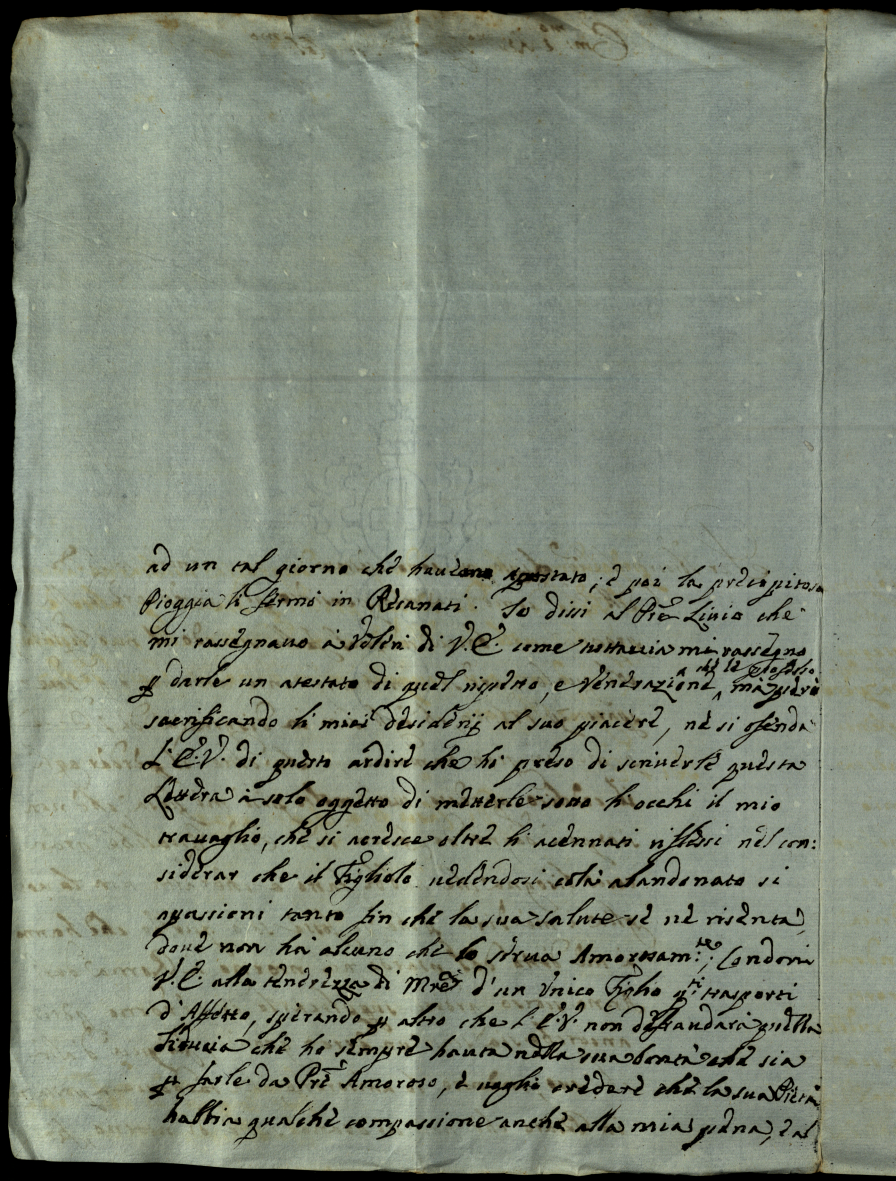 ad un tal giorno che haveano apostato, e poi la precipitosa
Pioggia li fermò in Recanati. Io dissi al Pre Livio che
mi rassegnavo à Voleri di V.E. come tuttavia mi rassegno
p darle un atestato di quel rispetto, e Venerazione, che le Professo, ma però
sacrificando li miei desiderij al suo piacere, nè si ofenda
L'E.V. di questo ardire che hò preso di scriverle questa
Lettera à solo oggetto di metterle sotto l'occhi il mio
travaglio, che si acresce oltre li acennati riflessi nel con:
siderar che il Figliolo vedendosi colà abandonato si
apassioni tanto fin che la sua salute se ne risenta,
dove non hà alcuno che lo serva Amorosam.te; Condoni
V.E. alla tenerezza di Mre d'un Unico Figlio q.ti trasporti
d'Affetto, sperando p altro che l'E.V. non defraudarà quella
fiducia che ho sempre hauta nella sua bontà che sia
p farle da Pre Amoroso, e voglio credere che la sua Pietà
habbia qualche compassione anche alla mia pena, e al